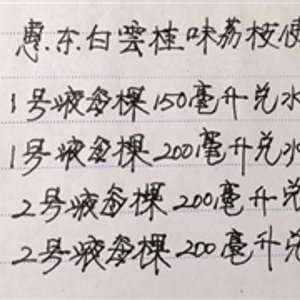 惠东白雲桂味荔枝使
1号液每棵150毫升兑水
1号液每棵200毫升兑水
2号液每棵200毫升兑
2号液每棵200毫升兑